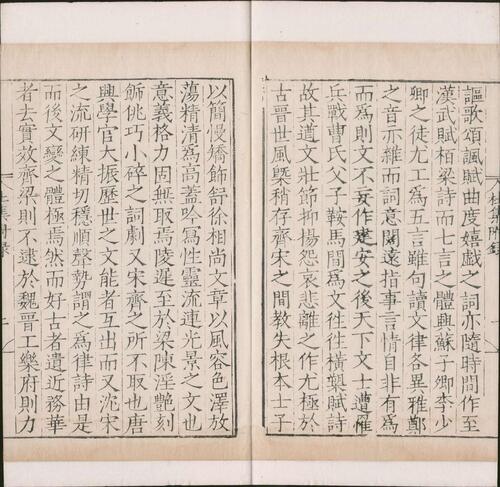 謳歌頌諷賦曲度嬉戲之詞亦隨時間作至
漢武賦栢梁詩而七言之體興蘇子卿李少
卿之徒尤工爲五言雖句讀文律各異雅鄭
之音亦雜而詞意闊遠指事言情自非有爲
而爲則文不妄作建安之後天下文士遭罹
兵戰曹氏父子鞍馬間爲文徃徃横槊賦詩
故其遒文壯節抑揚怨哀悲離之作尤極於
古晉世風槩稍存齊宋之間教失根本士子
以簡慢矯飾舒徐相尚文章以風容色澤放
蕩精清爲高蓋吟寫性靈流連光景之文也
意義格力固無取焉陵遲至於梁陳淫艷刻
飾佻巧小碎之詞劇又宋齊之所不取也唐
興學官大振歷世之文能者互出而又沈宋
之流研練精切穩順聲勢謂之爲律詩由是
而後文變之體極焉然而好古者遺近務華
者去實效齊梁則不逮於魏晉工樂府則力